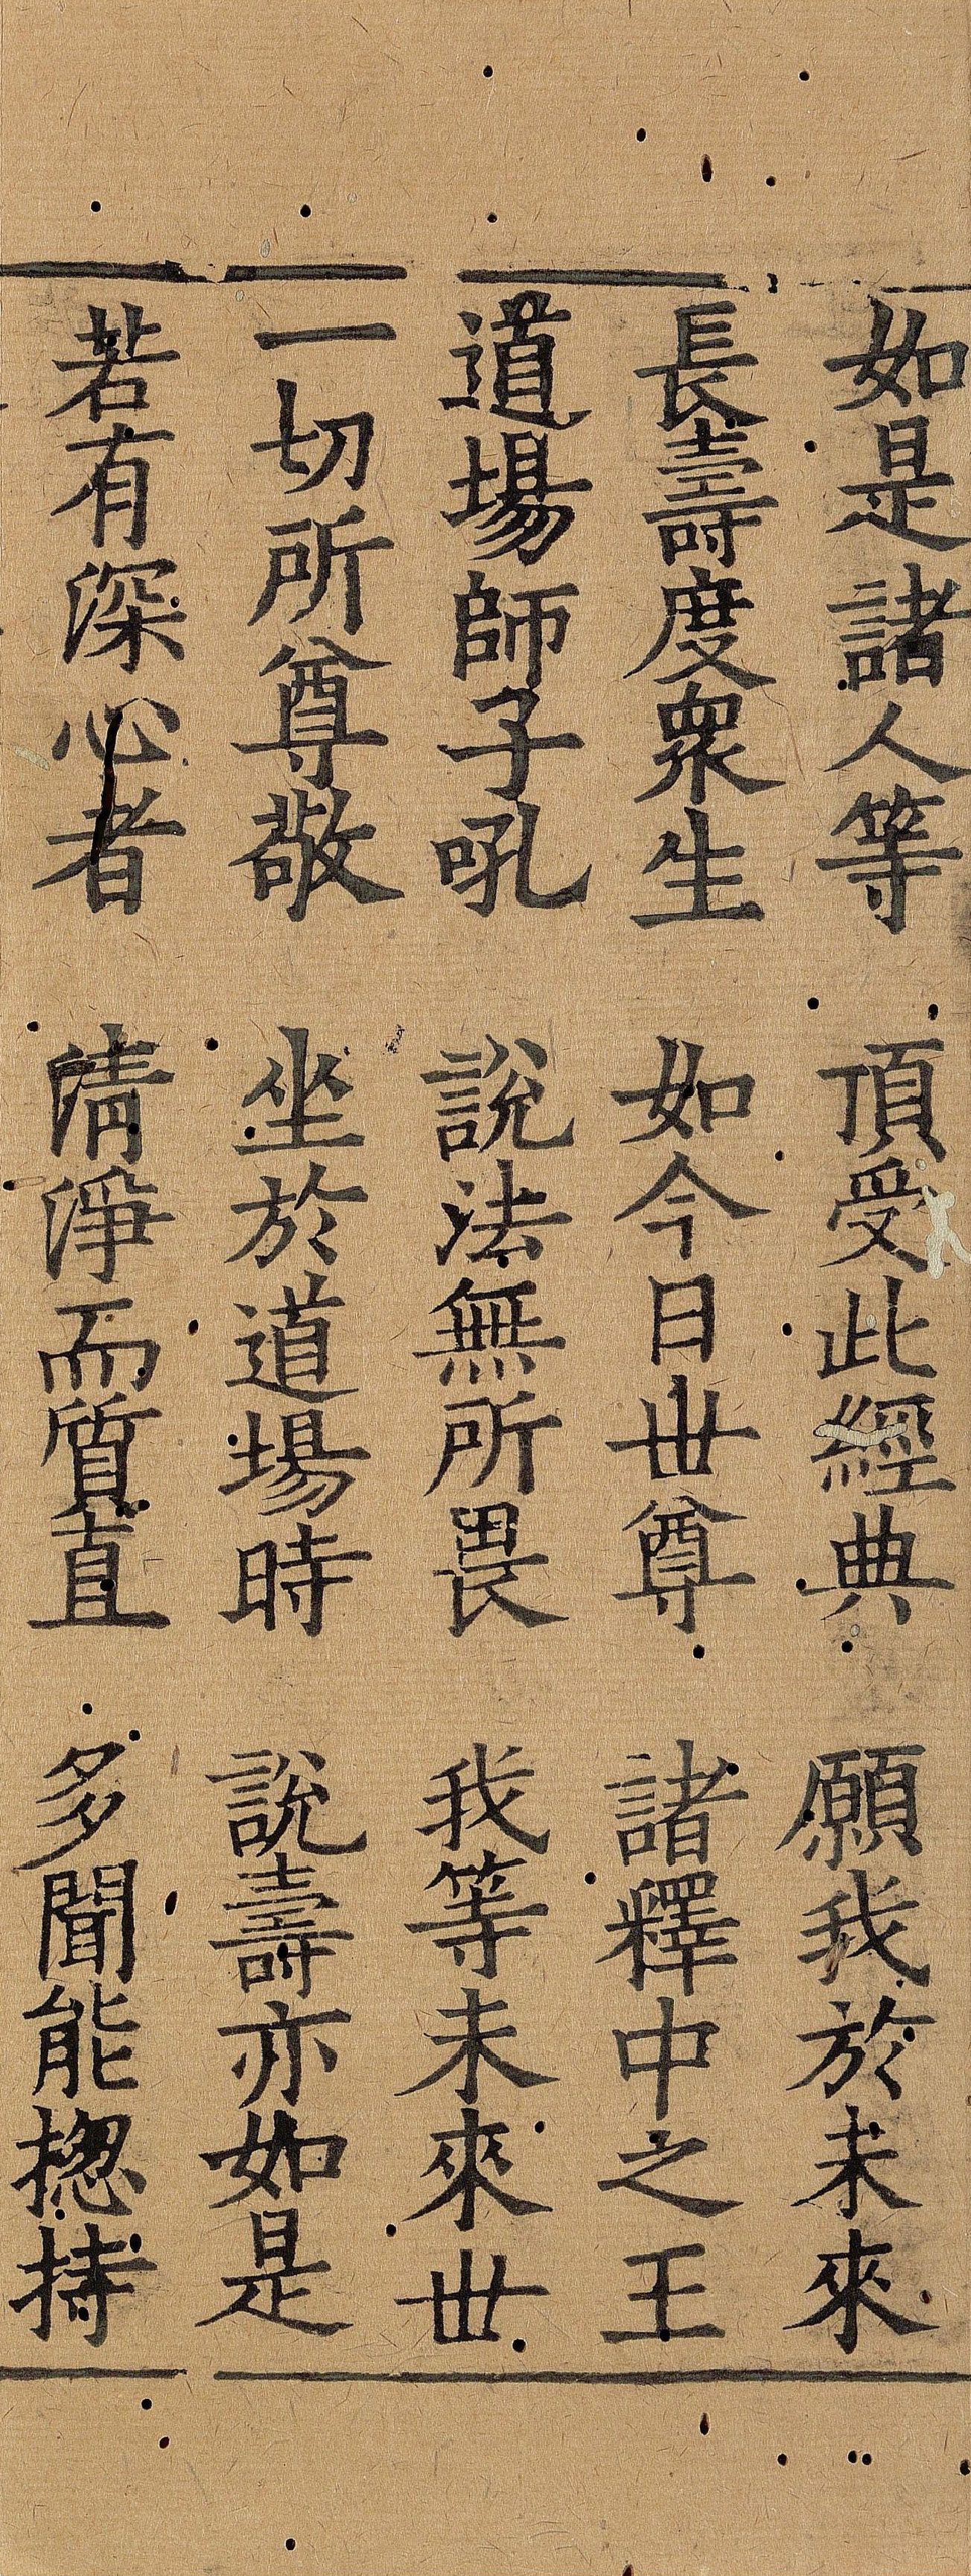 如是諸人等　頂受此經典　願我於未來
長壽度衆生　如今日世尊　諸釋中之王
道場師子吼　說法無所畏　我等未來世
一切所尊敬　坐於道場時　說壽亦如是
若有深心者　清淨而質直　多聞能揔持